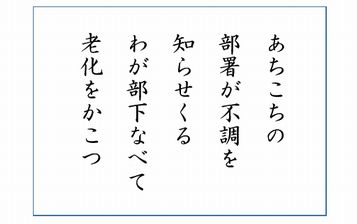 あちこちの
部署が不調を
知らせくる
わが部下なべて
老化をかこつ